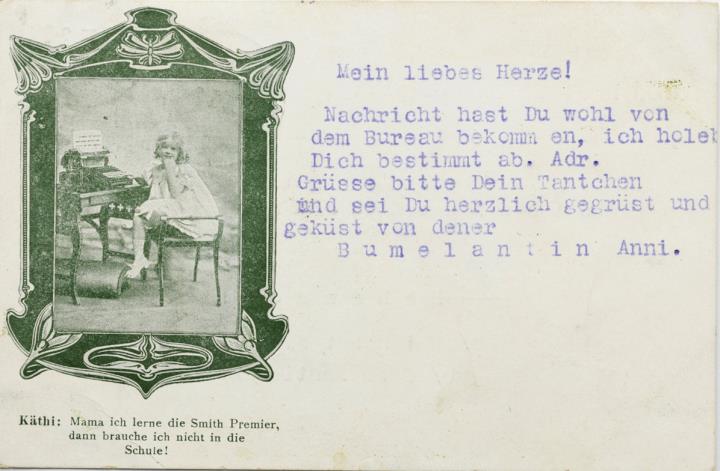 Mein liebes Herze!
Nachricht hast Du wohl von
dem Bureau bekomm en, ich hole
Dich bestimmt ab. Adr.
Grüsse bitte Dein Tantchen
und sei Du herzlich gegrüst und
geküst von dener
B u m e l a n t i n Anni.
Käthi: Mama ich lerne die Smith Premier,
dann brauche ich nicht in die
Schule!